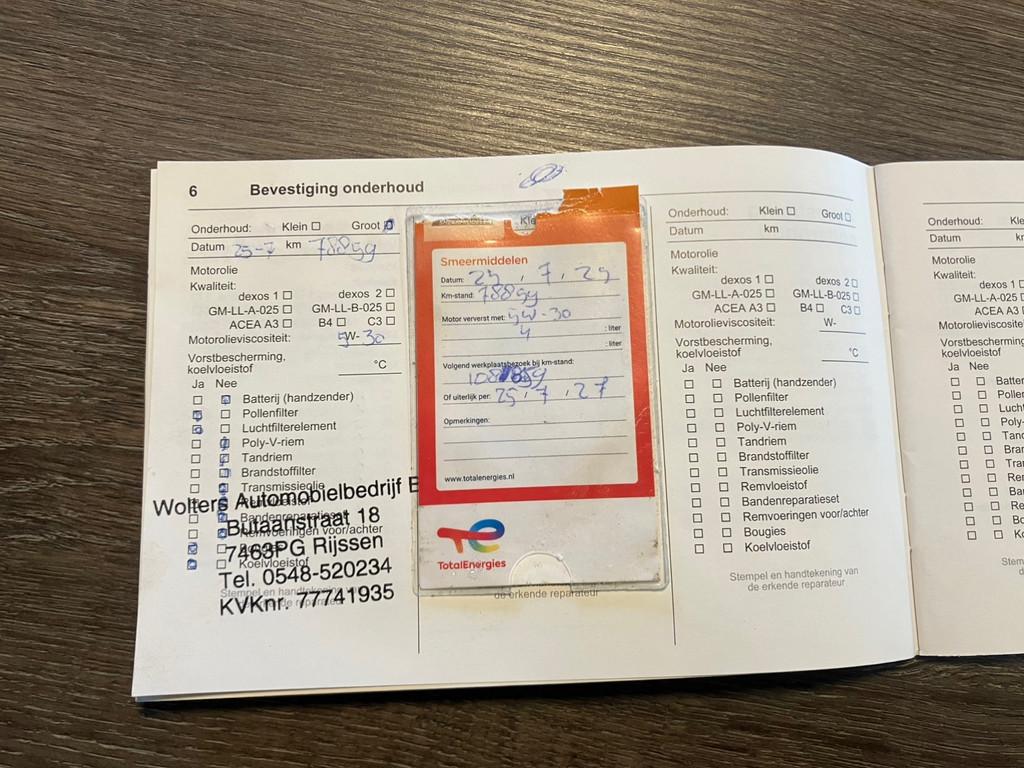 6 Bevestiging onderhoud
Onderhoud: Klein ☐ Groot
Datum 25-7 km 78859
Motorolie
Kwaliteit:
dexos 1 ☐ dexos 2 ☐
GM-LL-A-025 ☐ GM-LL-B-025 ☐
ACEA A3 ☐ B4 ☐ C3 ☐
Motorolieviscositeit: 5W-30
Vorstbescherming,
koelvloeistof °C
Ja Nee
Batterij (handzender)
Pollenfilter
Luchtfilterelement
Poly-V-riem
Tandriem
Brandstoffilter
Transmissieolie
Remvloeistof
Bandenreparatieset
Remvoeringen voor/achter
Koelvloeistof
Stempel en handtekening van
de erkende reparateur
Wolters Automobielbedrijf B
Butaanstraat 18
7463PG Rijssen
Tel. 0548-520234
KVKnr. 77741935
Kle
Smeermiddelen
Datum: 25, 7, 25
Km-stand: 78859
Motor ververst met: 5W-30
4 : liter
: liter
Volgend werkplaatsbezoek bij km-stand:
Of uiterlijk per: 25, 7, 27
Opmerkingen:
www.totalenergies.nl
TotalEnergies
de erkende reparateur
Onderhoud: Klein ☐ Groot ☐
Datum km
Motorolie
Kwaliteit:
dexos 1 ☐ dexos 2 ☐
GM-LL-A-025 ☐ GM-LL-B-025 ☐
ACEA A3 ☐ B4 ☐ C3 ☐
Motorolieviscositeit: W-
Vorstbescherming,
koelvloeistof °C
Ja Nee
☐ ☐ Batterij (handzender)
☐ ☐ Pollenfilter
☐ ☐ Luchtfilterelement
☐ ☐ Poly-V-riem
☐ ☐ Tandriem
☐ ☐ Brandstoffilter
☐ ☐ Transmissieolie
☐ ☐ Remvloeistof
☐ ☐ Bandenreparatieset
☐ ☐ Remvoeringen voor/achter
☐ ☐ Bougies
☐ ☐ Koelvloeistof
Stempel en handtekening van
de erkende reparateur
Onderhoud: Kle
Datum km
Motorolie
Kwaliteit:
dexos 1 ☐
GM-LL-A-025 ☐
ACEA A3 ☐
Motorolieviscosite
Vorstbescherming,
koelvloeistof
Ja Nee
☐ ☐ Batter
☐ ☐ Poller
☐ ☐ Lucht
☐ ☐ Poly-
☐ ☐ Tand
☐ ☐ Bran
☐ ☐ Tra
☐ ☐ Re
☐ ☐ Ba
☐ ☐ Re
☐ ☐ Bo
☐ ☐ Ko
Stem
d